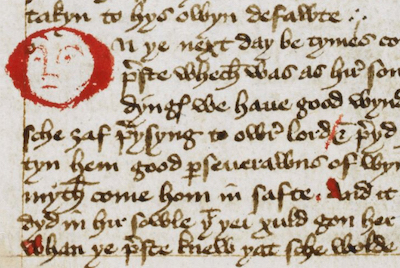 takyn to hys owyn defawte
On ye next day be tymes co
pͬste whech was as hir son
dyng we haue good wynd
sche ȝaf pͬysyng to owir lord & pͬyd
tyn hem good pseuerawns of wyn
myth come hom in safte. And it
dyd in hir sowle yͭ yei xuld gon her
whan ye pͬste knew yat sche wolde